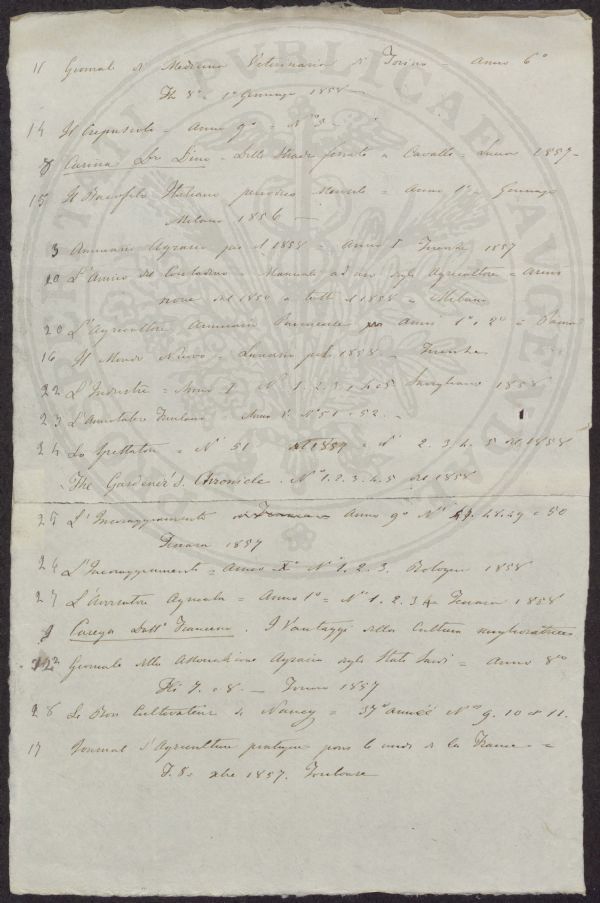 11 Giornale di Medicina Veterinaria di Torino = Anno 6°
1° Gennajo 1858
14 Il Crepuscolo = Anno 9° = N° 3
8 Carina Dr Dino - Delle Strade ferrate a Cavalli = Lucca 1857 -
15 Il Bacofilo Italiano periodico Mensile = Anno Gennajo
Milano 1856
3 Annuario Agrario pel 1858 = Anno Firenze 1857
10 L'Amico del Contadino = Manuale ad uso degli Agricoltori =
nove dal 1850 a tutto il 1858 = Milano
20 L'Agricoltore Annuario Parmense Anni 1° e 2° = Parma
16 Il Mondo Nuovo = Lunario pel 1858 - Firenze
22 L'Industre = Anno 1 N° 1. 2. 3. 4 e 5 Savigliano 1858
23 L'Annotatore Friulano Anno N° 51 e 52. -
24 Lo Spettatore = N° 51 del 1857 e N° 2. 3. 4. 5 del 1858
The Gardener's Chronicle. N° 1. 2. 3. 4. 5 del 1858
25 L'Incoraggiamento Anno 9° N° 47. 48. 49 e 50
Ferrara 1857
26 L'Incoraggiamento = Anno X° N° 1. 2. 3. Bologna 1858
27 L'Avvenire Agricola = Anno 1° = N° 1. 2. 3 Ferrara 1858
Carega Dott. Francesco. I Vantaggi della Cultura miglioratrice
Giornale della Associazione Agraria degli Stati Sardi = Anno 8°
7. e 8. - Torino 1857
28 Le Bon Cultivateur de Nancy = 37° année N° 9. 10 & 11.
17 Journal d'Agriculture pratique pour le midi de la France =
xbre 1857. Toulouse